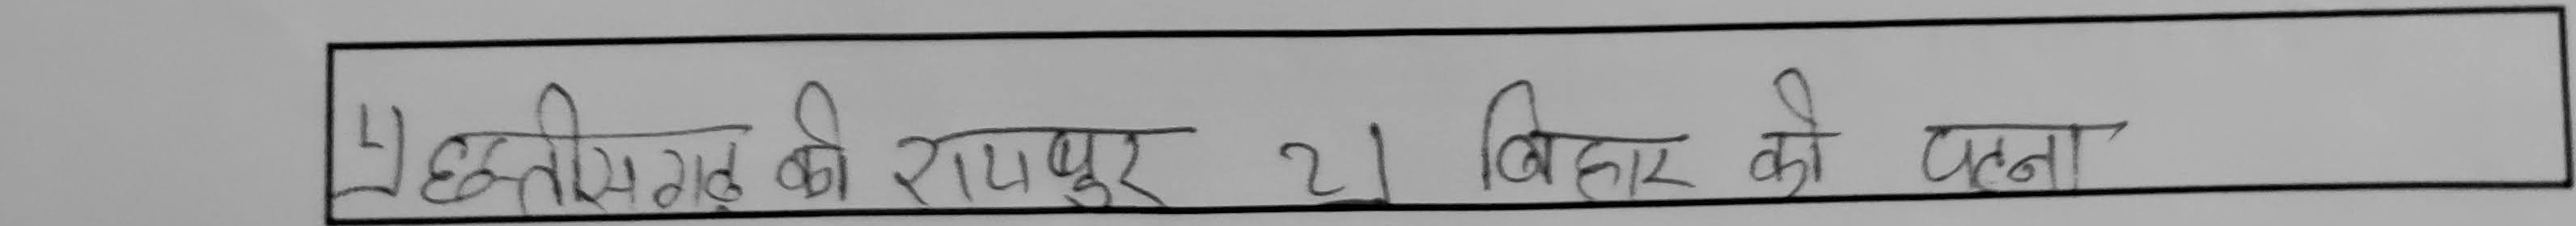 1) छत्तीसगढ़ की रायपुर 2) बिहार की पटना